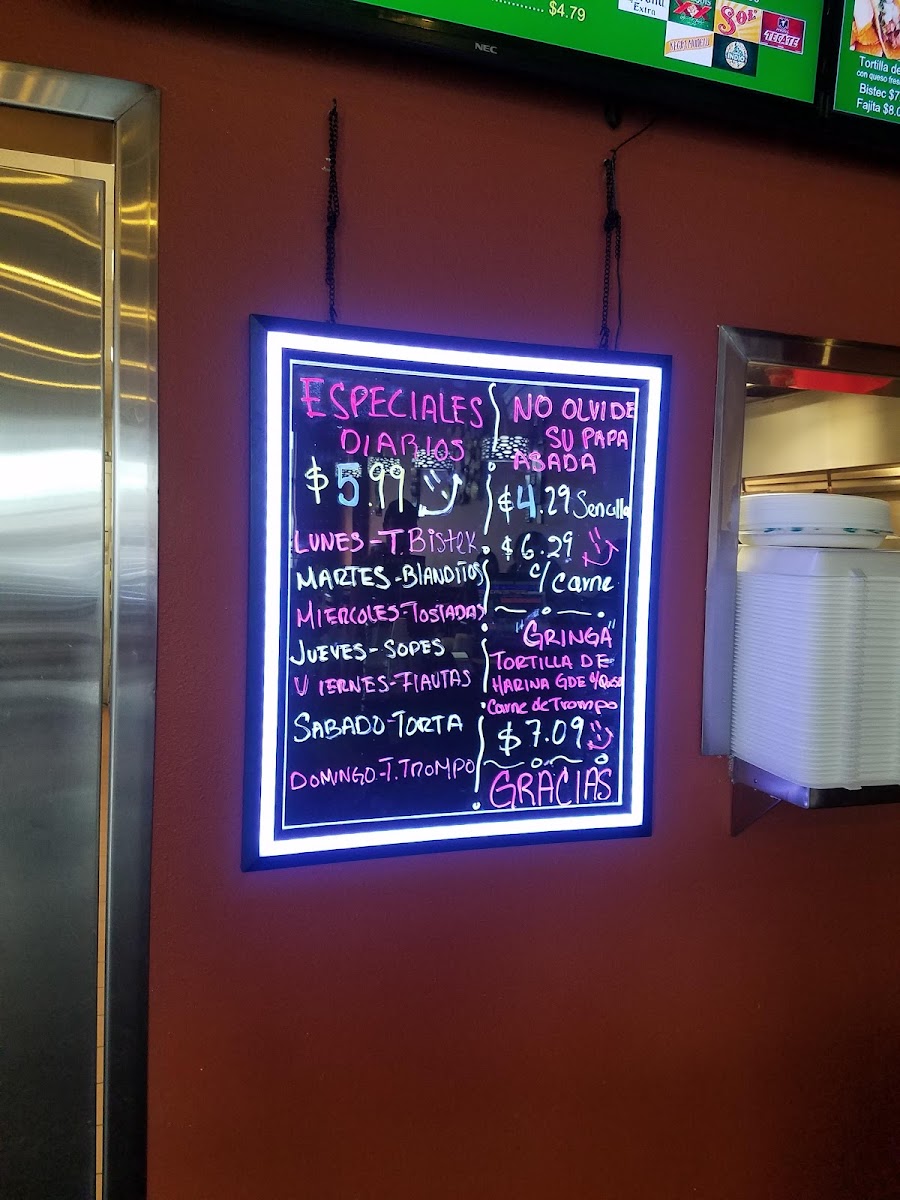 $4.79
Extra
XX
SOL
TECATE
INDIO
NEC
Tortilla de
con queso fres
Bistec $7
Fajita $8.0
ESPECIALES
DIARIOS
$5.99
LUNES-T.Bistek
MARTES-BLANDITOS
MIERCOLES-TOSTADAS
JUEVES-SOPES
VIERNES-FLAUTAS
SABADO-TORTA
DOMINGO-T.TROMPO
NO OLVIDE
SU PAPA
ASADA
$4.29 Sencilla
$6.29
c/ Carne
"GRINGA"
TORTILLA DE
HARINA GDE c/Queso
Carne de Trompo
$7.09
GRACIAS